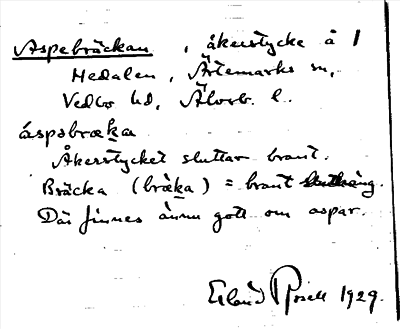 Aspebräckan, åkerstycke å 1
Hedalen, Ärtemarks sn,
Vedbo hd, Älvsb. l.
áspəbrœka
Åkerstycket sluttar brant.
Bräcka (brœ̀ka) = brant sluttning.
Där finnes ännu gott om aspar.
Erland Rosell 1929.